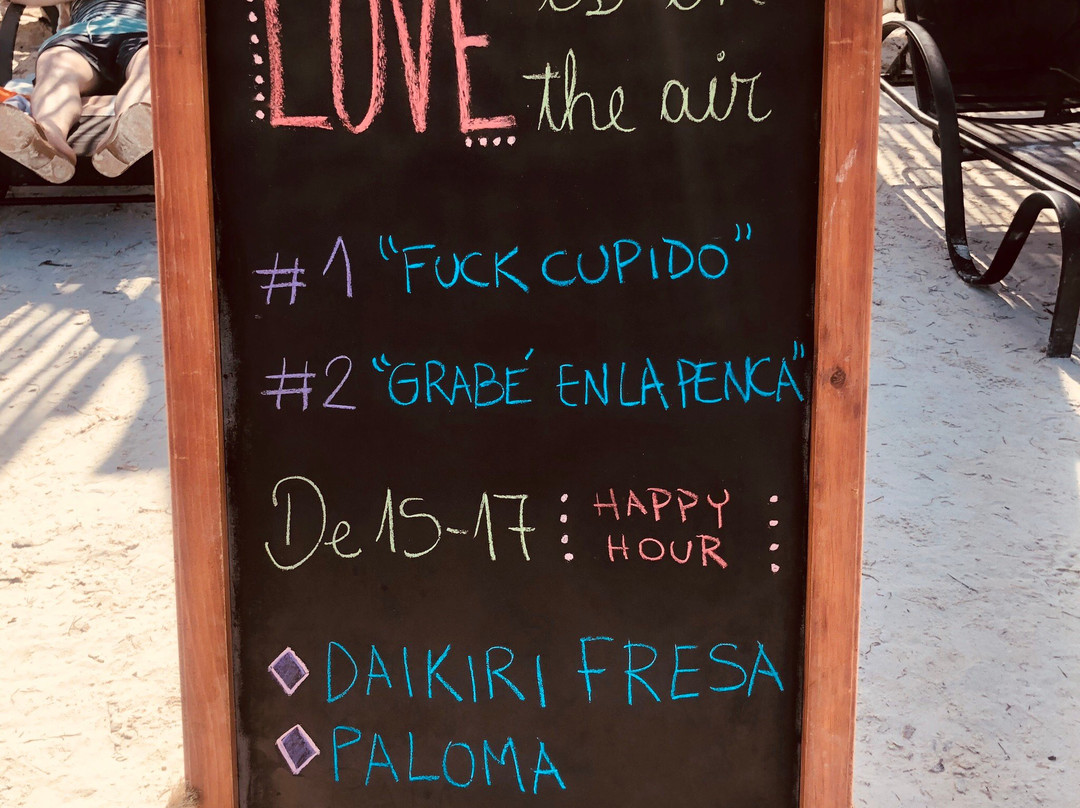 LOVE is in
the air
#1 "FUCK CUPIDO"
#2 "GRABÉ EN LA PENCA"
De 15-17 HAPPY
HOUR
DAIKIRI FRESA
PALOMA